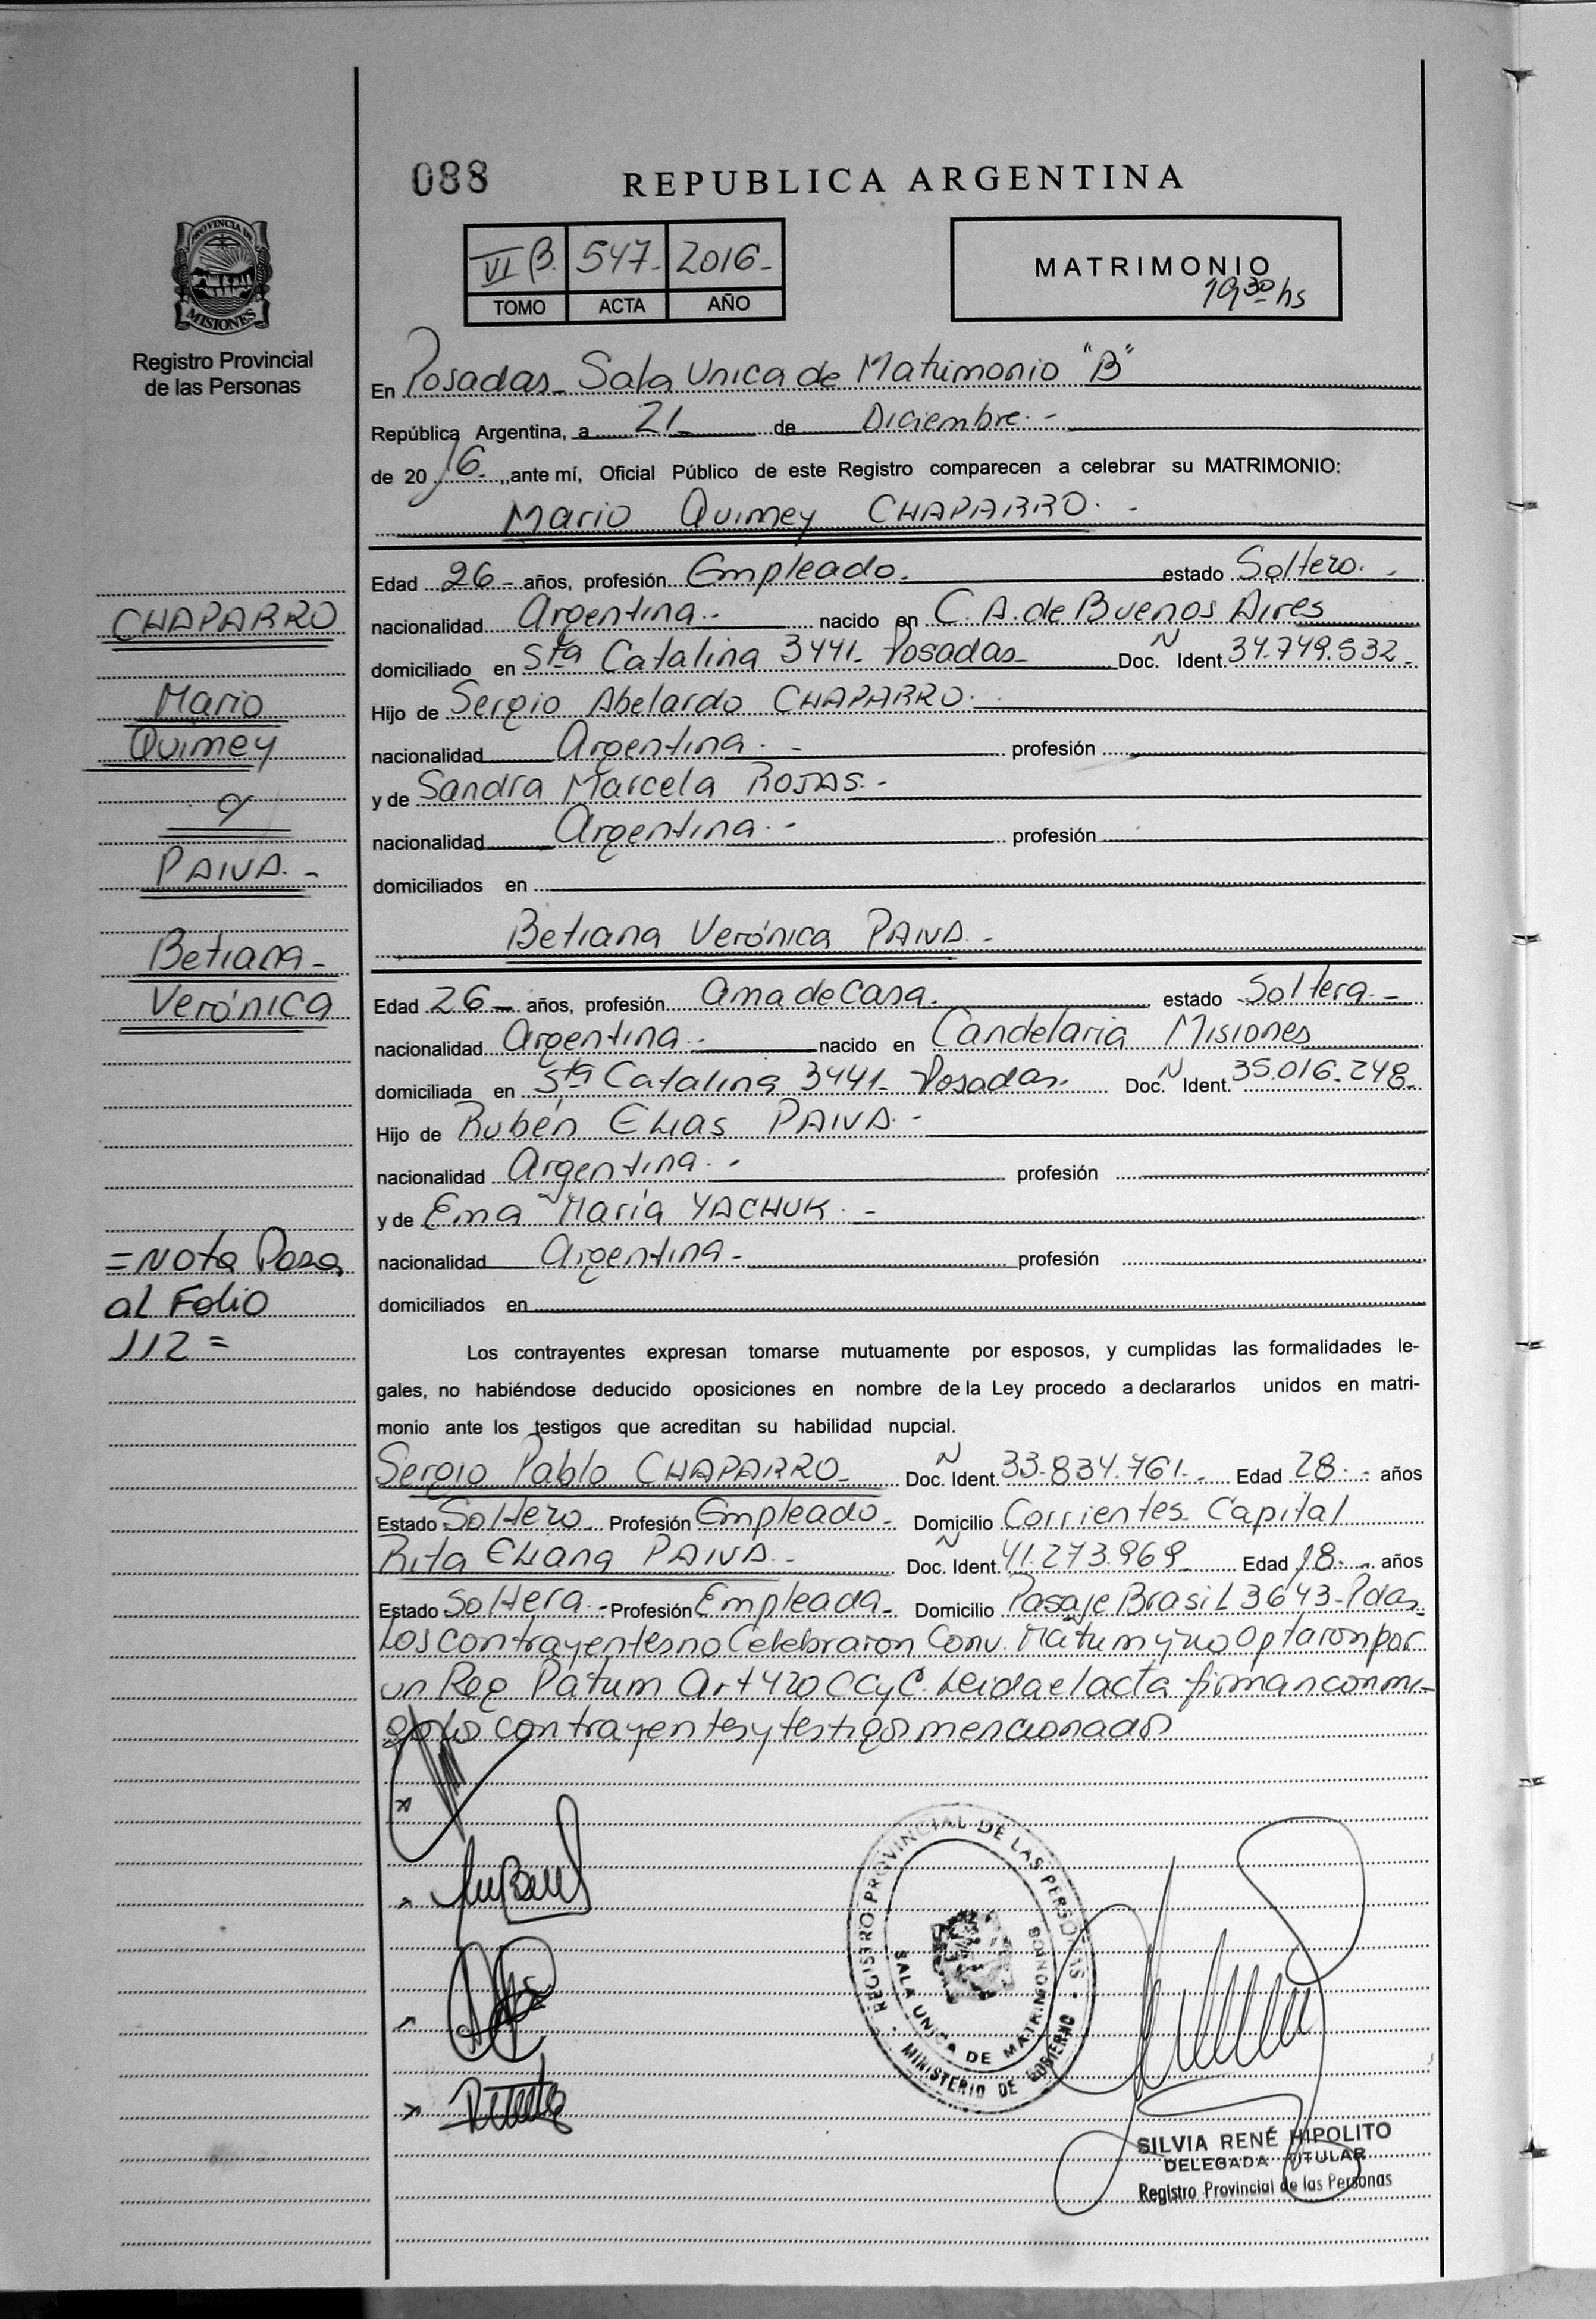 088
REPUBLICA ARGENTINA
VI B. 547- 2016-
TOMO ACTA AÑO
MATRIMONIO
19 30 hs
PROVINCIA DE
MISIONES
Registro Provincial
de las Personas
En Posadas- Sala Unica de Matrimonio "B"
República Argentina, a 21- de Diciembre.-
de 20 16- ,,ante mí, Oficial Público de este Registro comparecen a celebrar su MATRIMONIO:
Mario Quimey CHAPARRO.-
Edad 26- años, profesión Empleado. estado Soltero.-
nacionalidad Argentina.- nacido en C.A. de Buenos Aires
domiciliado en Sta Catalina 3441- Posadas- Doc. N Ident. 34.749.532-
Hijo de Sergio Abelardo CHAPARRO.
nacionalidad Argentina.- profesión
y de Sandra Marcela ROJAS.-
nacionalidad Argentina.- profesión
domiciliados en
Betiana Verónica PAIVA.-
Edad 26- años, profesión Ama de Casa. estado Soltera.-
nacionalidad Argentina.- nacido en Candelaria Misiones
domiciliada en Sta Catalina 3441- Posadas. Doc. N Ident. 35.016.248-
Hijo de Rubén Elias PAIVA.-
nacionalidad Argentina.- profesión
y de Ema María YACHUK.-
nacionalidad Argentina- profesión
domiciliados en
Los contrayentes expresan tomarse mutuamente por esposos, y cumplidas las formalidades le-
gales, no habiéndose deducido oposiciones en nombre de la Ley procedo a declararlos unidos en matri-
monio ante los testigos que acreditan su habilidad nupcial.
Sergio Pablo CHAPARRO- Doc. N Ident. 33.834.761- Edad 28- años
Estado Soltero. Profesión Empleado- Domicilio Corrientes Capital
Rita Eliana PAIVA.- Doc. N Ident. 41.273.969- Edad 18- años
Estado Soltera.- Profesión Empleada- Domicilio Pasaje Brasil 3643-Pdas-
Los contrayentes no Celebraron Conv. Matrim y no Optaron por
un Reg Patrim Art 420 CCyC. Leida el acta firman conmi-
go los contrayentes y testigos mencionados
CHAPARRO
Mario
Quimey
y
PAIVA.-
Betiana-
Verónica
=Nota Pasa
al Folio
112=
REGISTRO PROVINCIAL DE LAS PERSONAS
SALA UNICA DE MATRIMONIOS
MINISTERIO DE GOBIERNO
SILVIA RENÉ HIPOLITO
DELEGADA TITULAR
Registro Provincial de las Personas